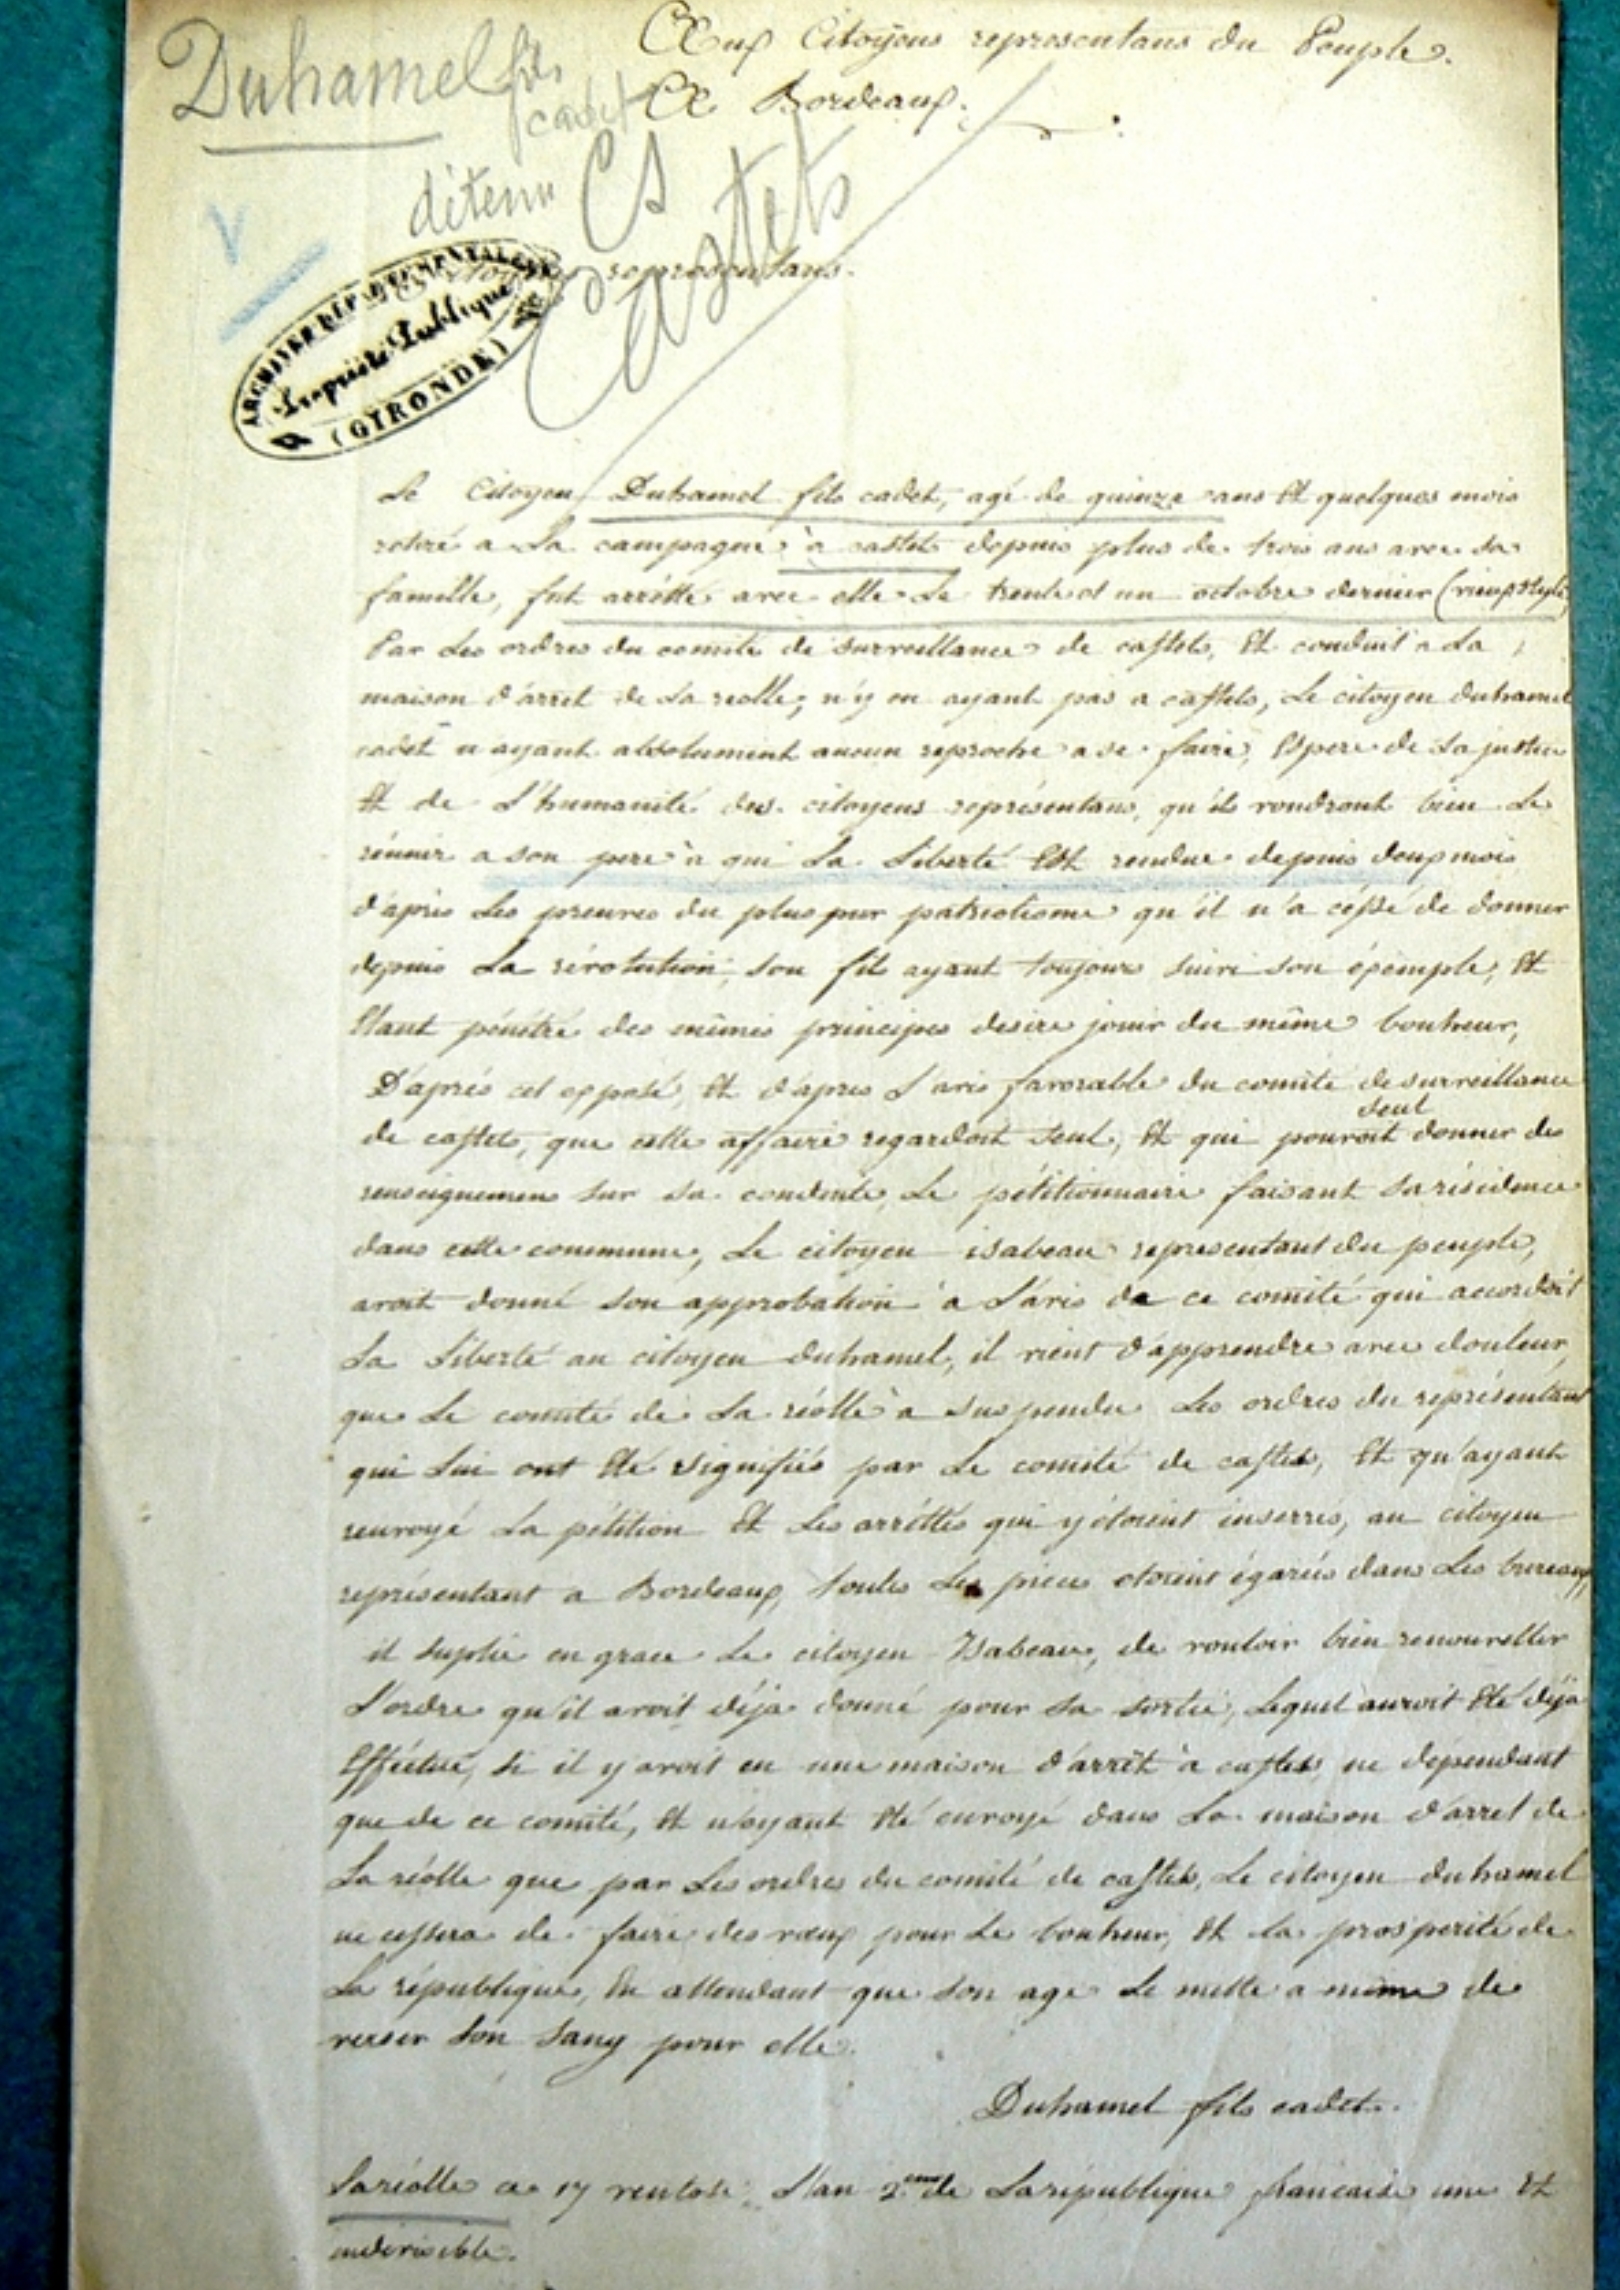 Aux Citoyens representans du Peuple.
A Bordeaux.
Duhamel fils
cadet
détenu
Castets
Citoyens representans.
ARCHIVES DÉPARTEMENTALES
Propriété Publique
(GIRONDE)
Le Citoyen Duhamel fils cadet, agé de quinze ans Et quelques mois
retiré a La campagne à castets depuis plus de trois ans avec sa
famille, fut arrêtté avec elle Le trente et un octobre dernier (vieux style)
Par Les ordres du comité de surveillance de castets, Et conduit a La
maison d'arret de La reolle; n'y en ayant pas a castets, Le citoyen duhamel
cadet n'ayant absolument aucun reproche a se faire, Espere de La justice
Et de L'humanité des citoyens représentans, qu'ils voudront bien Le
réunir a son pere à qui La Liberté Est rendue depuis deux mois
d'après Les preuves du plus pur patriotisme qu'il n'a céssé de donner
depuis La révolution, son fils ayant toujours suivi son éxemple, Et
Etant pénétré des mêmes principes desire jouir du même bonheur,
D'après cet exposé, Et d'apres L'avis favorable du comité de surveillance
de castets, que cette affaire regardoit seul, Et qui seul pouvoit donner des
renseignemens sur sa conduite, Le pétitionnaire faisant sa résidence
dans cette commune, Le citoyen isabeau representant du peuple,
avoit donné son approbation à L'avis de ce comité qui accordoit
La Liberté au citoyen duhamel, il vient d'apprendre avec douleur,
que Le comité de La réolle à suspendu Les ordres du représentant
qui Lui ont Eté signifiés par Le comité de castets, Et qu'ayant
renvoyé La pétition Et Les arrêttés qui y étoient inserrés, au citoyen
représentant a Bordeaux, toutes Les pieces étoient égarées dans Les bureaux,
il suplie en grace Le citoyen Ysabeau, de vouloir bien renouveller
L'ordre qu'il avoit déja donné pour sa sortie, Lequel auroit Eté déja
Efféctué, si il y avoit eu une maison d'arrêt à castets, ne dependant
que de ce comité, Et n'ayant Eté envoyé dans La maison d'arret de
La réolle que par Les ordres du comité de castets, Le citoyen duhamel
ne cessera de faire des vœux pour Le bonheur, Et La prosperité de
La république, En attendant que son age Le mette a même de
verser son sang pour elle.
Duhamel fils cadet.
La réolle ce 17 ventose L'an 2.eme de La république francaise une Et
indivisible.